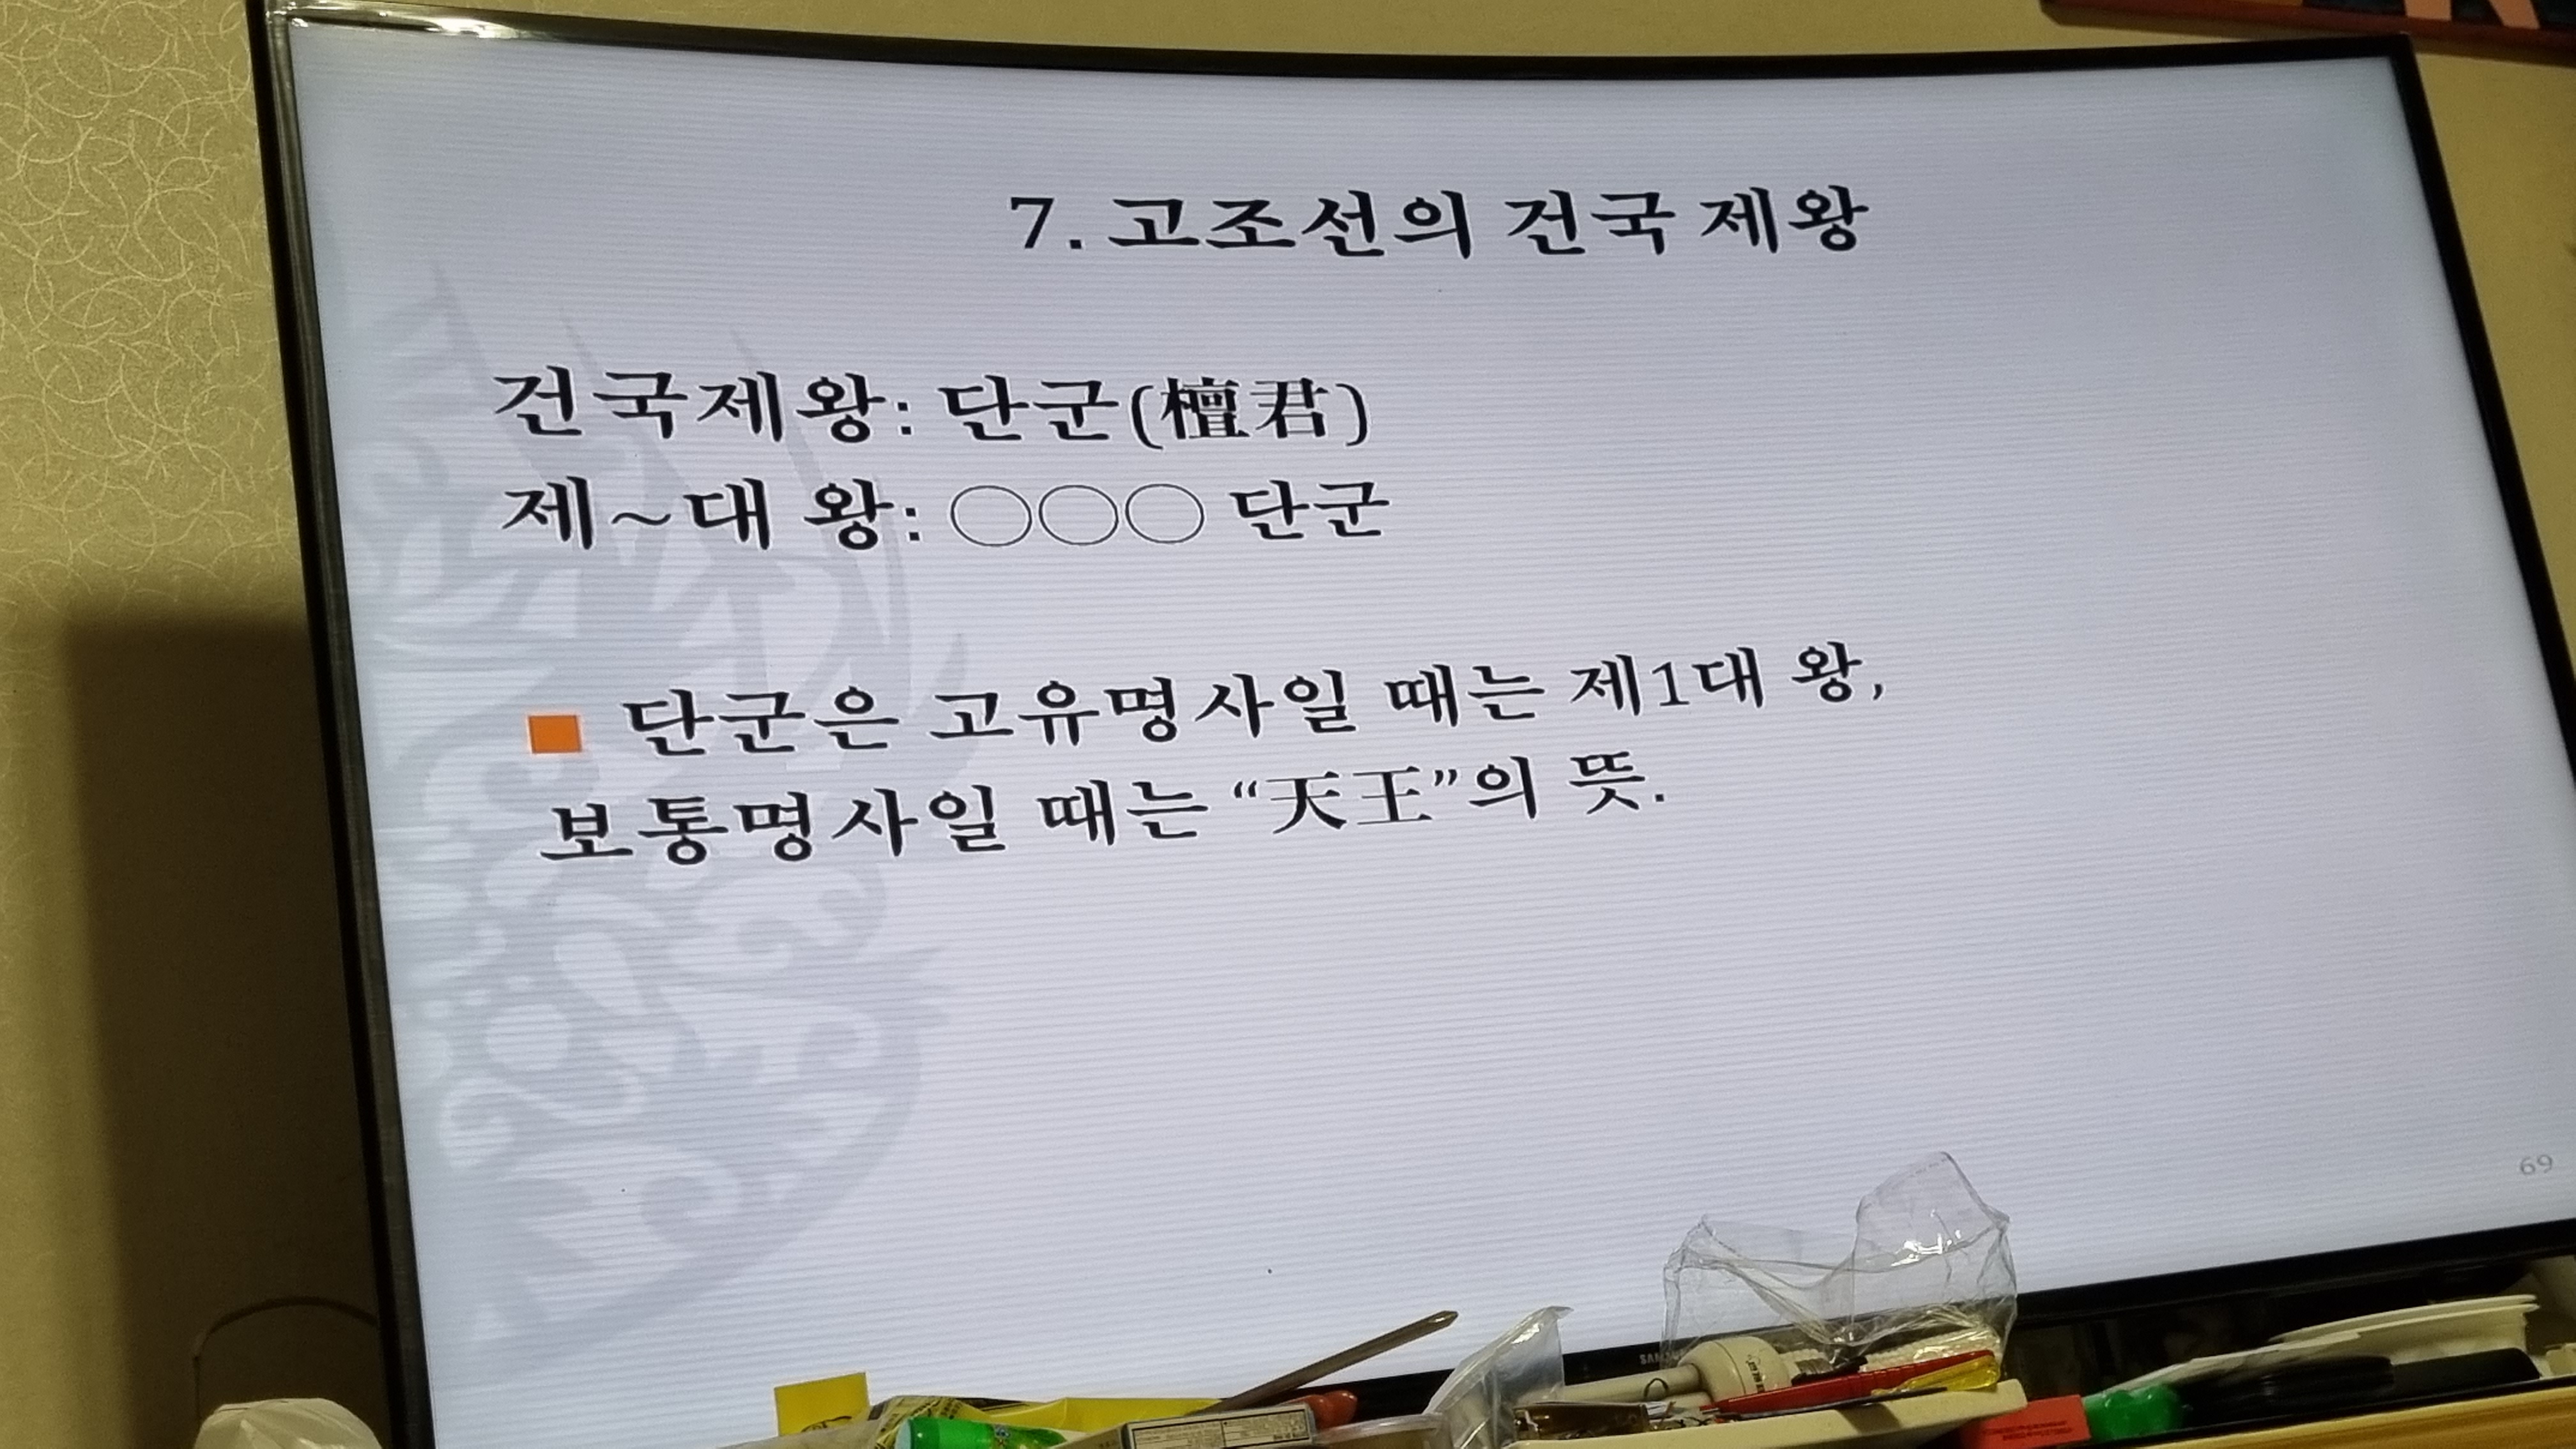 7. 고조선의 건국 제왕
건국제왕: 단군(檀君)
제~대 왕: ○○○ 단군
■ 단군은 고유명사일 때는 제1대 왕,
보통명사일 때는 “天王”의 뜻.
69